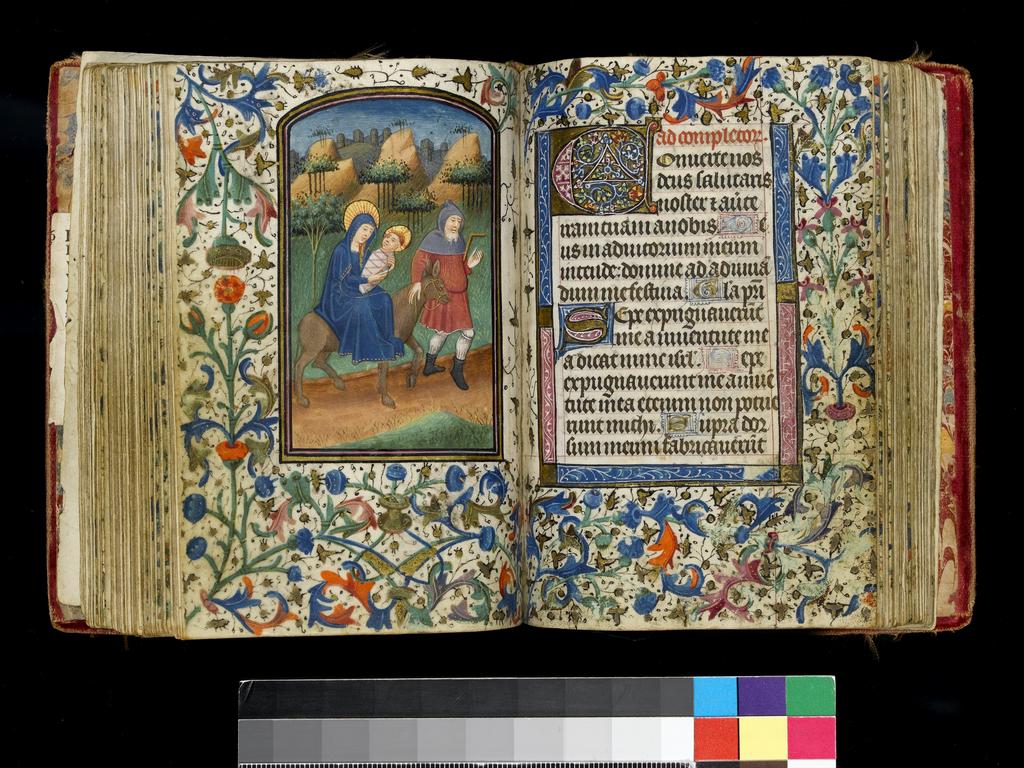 ad completor.
Conuerte nos
deus salutaris
noster & auerte
iram tuam a nobis. De
us in adiutorium meum
intende: domine ad adiuuā
dum me festina. Gla pri
Sepe expugnauerūt
me a iuuentute me
a dicat nunc isrl. Sepe
expugnauerunt me a iuue
tute mea etenim non potue
runt michi. Supra dor
sum meum fabricauerūt